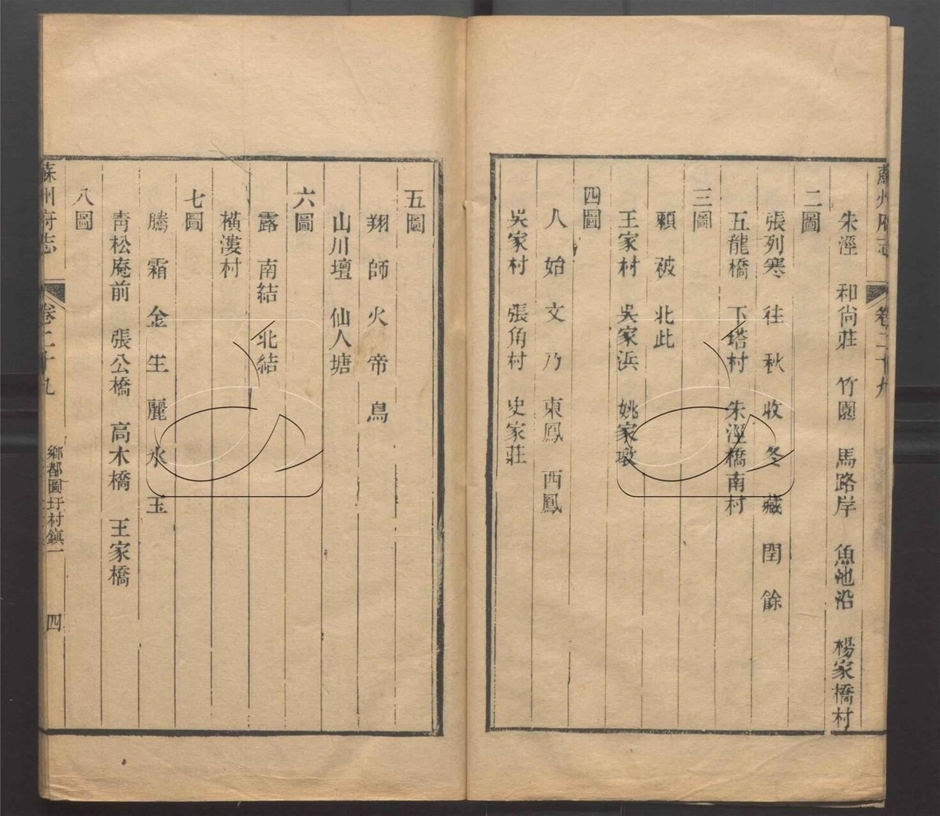 朱涇　和尚莊　竹園　馬路岸　魚池沿　楊家橋村
二圖
張列寒　往　秋　收　冬　藏　閏　餘
五龍橋　下塔村　朱涇橋南村
三圖
賴　被　北此
王家村　吳家浜　姚家墩
四圖
人　始　文　乃　東鳳　西鳳
吳家村　張角村　史家莊
五圖
翔　師　火　帝　鳥
山川壇　仙人塘
六圖
露　南結　北結
橫漊村
七圖
騰　霜　金　生　麗　水　玉
青松庵前　張公橋　高木橋　王家橋
八圖
蘇州府志　卷二十九　鄉都圖圩村鎮一　四